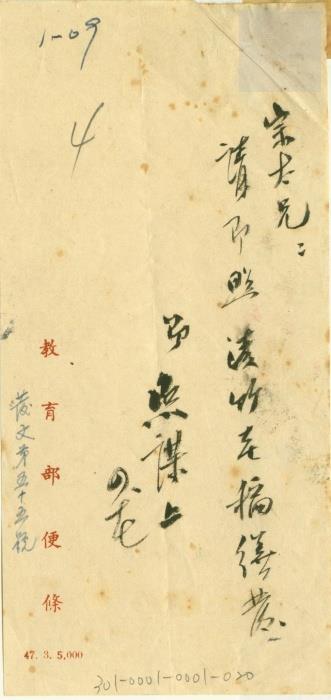 1-09
4
兄：
請即照 稿繕發
弟 謀上
發文第五十五號
教育部便條
47. 3. 5,000
301-0001-0001-020